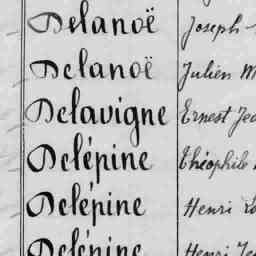 Delanoë Joseph
Delanoë Julien M
Delavigne Ernest Jea
Delépine Théophile
Delépine Henri Lo
Delépine Henri Je